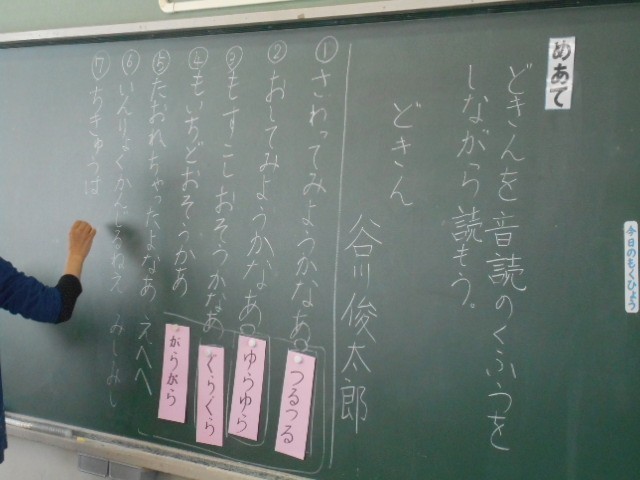 今日のもくひょう
めあて
どきんを音読のくふうを
しながら読もう。
どきん
谷川俊太郎
①さわってみようかなあ
つるつる
②おしてみようかなあ
ゆらゆら
③もすこしおそうかなあ
ぐらぐら
④もいちどおそうかあ
がらがら
⑤たおれちゃったよなあ えへへ
⑥いんりょくかんじるねえ みしみし
⑦ちきゅうは